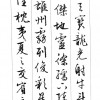 天寶龍光射牛
傑地靈徐孺下
雄州霧列俊彩
枕夷夏之交